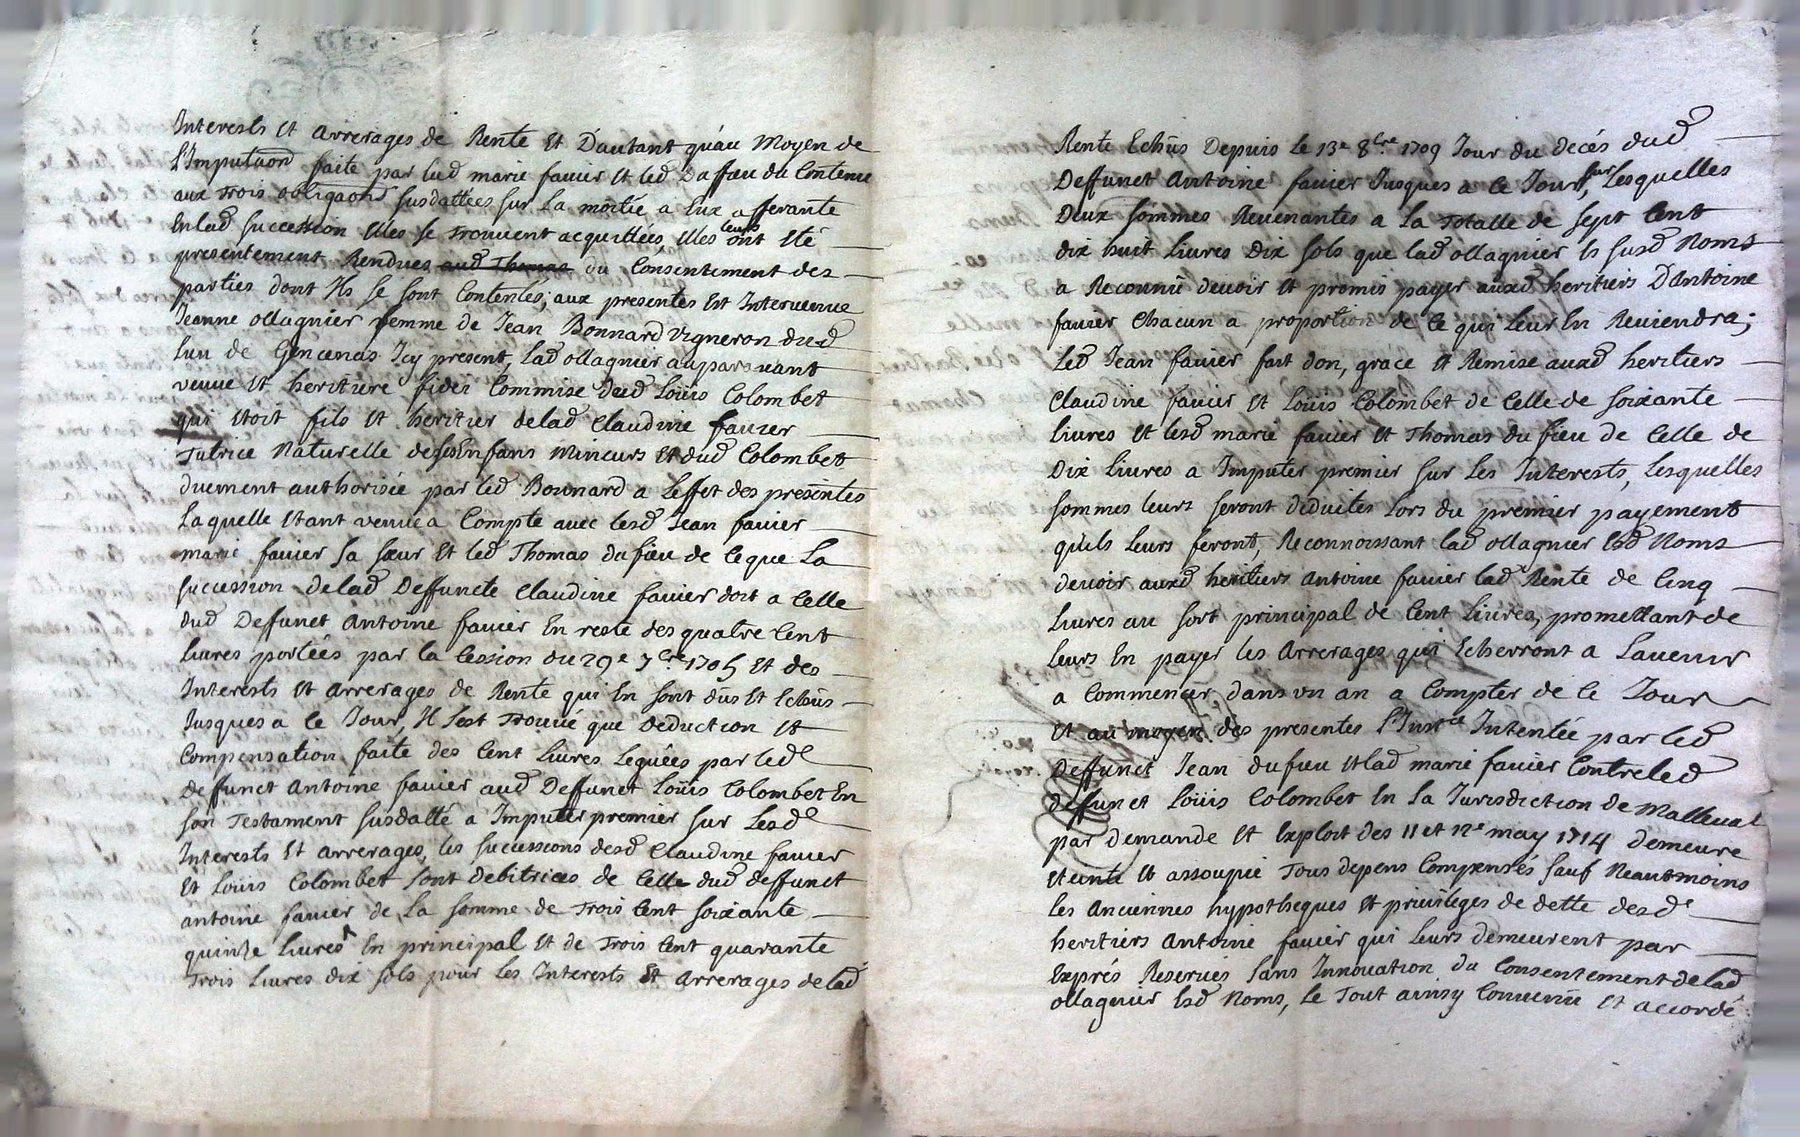 Interests et arrerages de Rente et D'autant qu'au moyen de
L'Imputaōn faite par lad marie favier et led Dufieu du Contenu
aux trois obligaōns susdattées sur La moitié a Eux afferante
En lad succession Elles se trouvent acquittées, Elles leurs ont Eté
presentement Rendues aud Thomas du Consentement des
parties dont Ils se sont Contentés; aux presentes Est Intervenue
Jeanne ollagnier femme de Jean Bonnard vigneron dud
lieu de Gencenas Icy present, lad ollagnier auparavant
veuve et heritiere fidei Commise dud Loüis Colombet
qui Etoit fils et heritier de lad Claudine favier
Tutrice Naturelle de ses Enfans mineurs et dud Colombet
duement authorisée par led Bonnard a L'effet des presentes
Laquelle Etant venue a Compte avec lesd Jean favier
marie favier sa sœur et led Thomas dufieu de Ce que La
succession de lad Deffuncte Claudine favier doit a Celle
dud Deffunct Antoine favier En reste des quatre Cent
Livres portées par la Cession du 29e 7bre 1705 et des
Interests et arrerages de Rente qui En sont dûs et Echûs
Jusques a Ce Jour, Il s'est trouvé que déduction et
Compensation faite des Cent Livres Leguées par led
Deffunct Antoine favier aud Deffunct Loüis Colombet En
son Testament susdatté a Imputer premier sur Lesd
Interests et arrerages, les successions desd Claudine favier
et Loüis Colombet sont debitrices de Celle dud deffunct
antoine favier de La somme de trois Cent soixante
quinze Livres En principal et de trois Cent quarante
trois Livres dix sols pour Les Interests et arrerages de lad
Rente Echûs Depuis Le 13e 8bre 1709 Jour du decés dud
Deffunct Antoine favier Jusques a Ce Jour, sur Lesquelles
Deux sommes Revenantes a La Totalle de sept Cent
dix huit Livres dix sols que lad ollagnier Es susd Noms
a Reconnu devoir et promis payer auxd heritiers D'antoine
favier Chacun a proportion de Ce qui Leur En Reviendra;
Led Jean favier fait don, grace et Remise auxd heritiers
Claudine favier et Loüis Colombet de Celle de soixante
Livres et lesd marie favier et Thomas du fieu de Celle de
Dix Livres a Imputer premier sur Les Interests, Lesquelles
sommes leurs seront déduites Lors du premier payement
qu'ils Leurs feront, Reconnoissant lad ollagnier Esd Noms
devoir auxd heritiers Antoine favier lad Rente de Cinq
Livres au sort principal de Cent Livres, promettant de
Leurs En payer les Arrerages qui Echerront a L'avenir
a Commencer dans un an a Compter de Ce Jour
et au moyen des presentes l'Instce Intentée par led
Deffunct Jean dufieu et lad marie favier Contre led
deffunct Loüis Colombet En La Jurisdiction de Malleval
par demande et Exploit des 11 et 12e may 1714 demeure
Eteinte et assoupie Tous depens Compensés sauf Neantmoins
Les Anciennes hypotheques et privileges de dette desd
heritiers Antoine favier qui Leurs demeurent par
Exprés Reservés sans Innovation du Consentement de lad
ollagnier Esd Noms, Le Tout ainsy Convenu et accordé